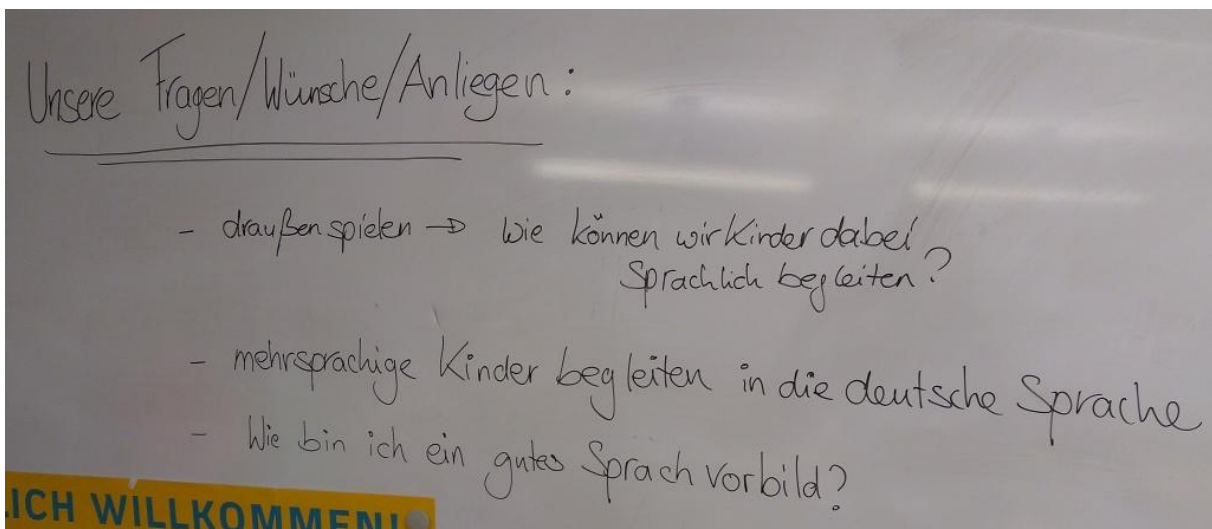 Unsere Fragen/Wünsche/Anliegen:
- draußen spielen → Wie können wir Kinder dabei
sprachlich begleiten?
- mehrsprachige Kinder begleiten in die deutsche Sprache
- Wie bin ich ein gutes Sprachvorbild?
LICH WILLKOMMEN!